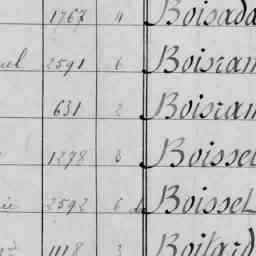 1767 4 Boisada
2591 6 Boisram
631 2 Boisram
1278 8 Boissel
2592 6 Boissel
1118 3 Boitard